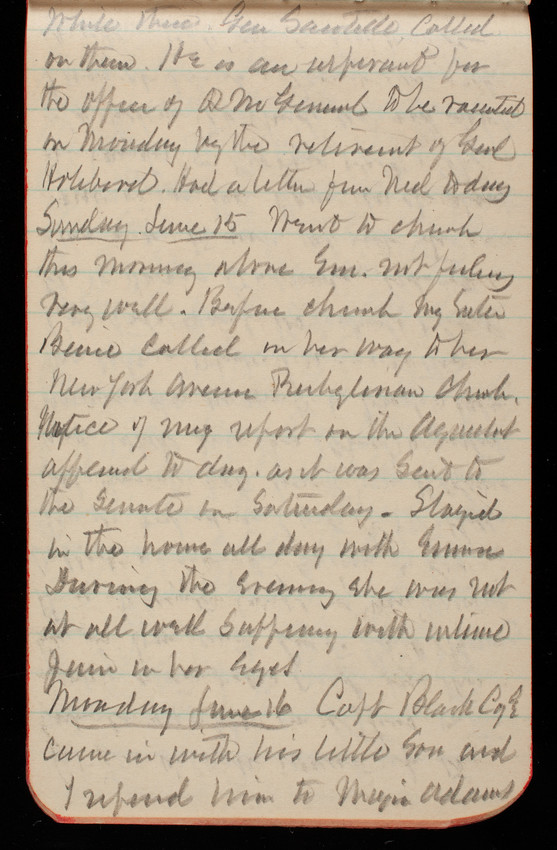 while there. Gen Sawtelle called
on them. He is an aspirant for
the office of Q M General to be vacated
on Monday by the retirement of Genl
Holibard. Had a letter from Ned today
Sunday June 15 Went to church
this morning alone Em. not feeling
very well. Before church my sister
Bessie called on her way to her
New York Avenue Presbyterian Church.
Notice of my report on the Aqueduct
appeared to day. as it was sent to
the Senate on Saturday - Stayed
in the house all day with Emma
During the evening she was not
at all well suffering with intense
pain in her eyes
Monday June 16 Capt Black C of E
came in with his little son and
I referred him to Major Adams